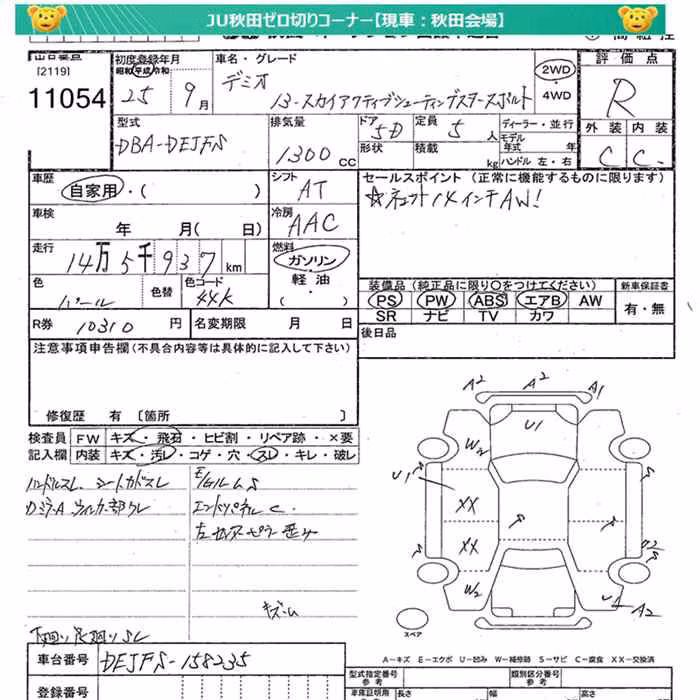 JU秋田ゼロ切りコーナー【現車：秋田会場】
[2119]
11054
初度登録年月
昭和 平成 令和
25 9月
車名・グレード
デミオ
13-スカイアクティブシューティングスタースポルト
2WD
・
4WD
評価点
R
外装 内装
C C
型式
DBA-DEJFS
排気量
1300cc
ドア
5D
形状
定員
5人
積載
kg
ディーラー・並行
モデル
年式 年
ハンドル 左・右
車歴
自家用・( )
シフト
AT
セールスポイント（正常に機能するものに限ります）
☆ネット14インチAW!
車検
年 月( 日)
冷房
AAC
走行
14万5千937km
燃料
ガソリン
・
軽油
・
( )
色
パール
色替
色コード
44K
装備品（純正品に限り〇をつけてください）
PS PW ABS エアB AW
SR ナビ TV カワ
新車保証書
有・無
R券 10310円
名変期限 月 日
後日品
注意事項申告欄（不具合内容等は具体的に記入して下さい）
修復歴 有 [箇所 ]
検査員
記入欄
FW キズ・飛石・ヒビ割・リペア跡・×要
内装 キズ・汚レ・コゲ・穴・スレ・キレ・破レ
ハンドルスレ シートカドスレ
エンドパネル C
キズ・ム
A2 A2 A1
U1
W2
U1
XX
XX
W2
U1 A2
スペア
A-キズ E-エクボ U-凹み W-補修跡 S-サビ C-腐食 XX-交換済
車台番号 DEJFS-158235
登録番号
型式指定番号
参考
類別区分番号
参考
車庫証明用
参考
長さ
幅
高さ